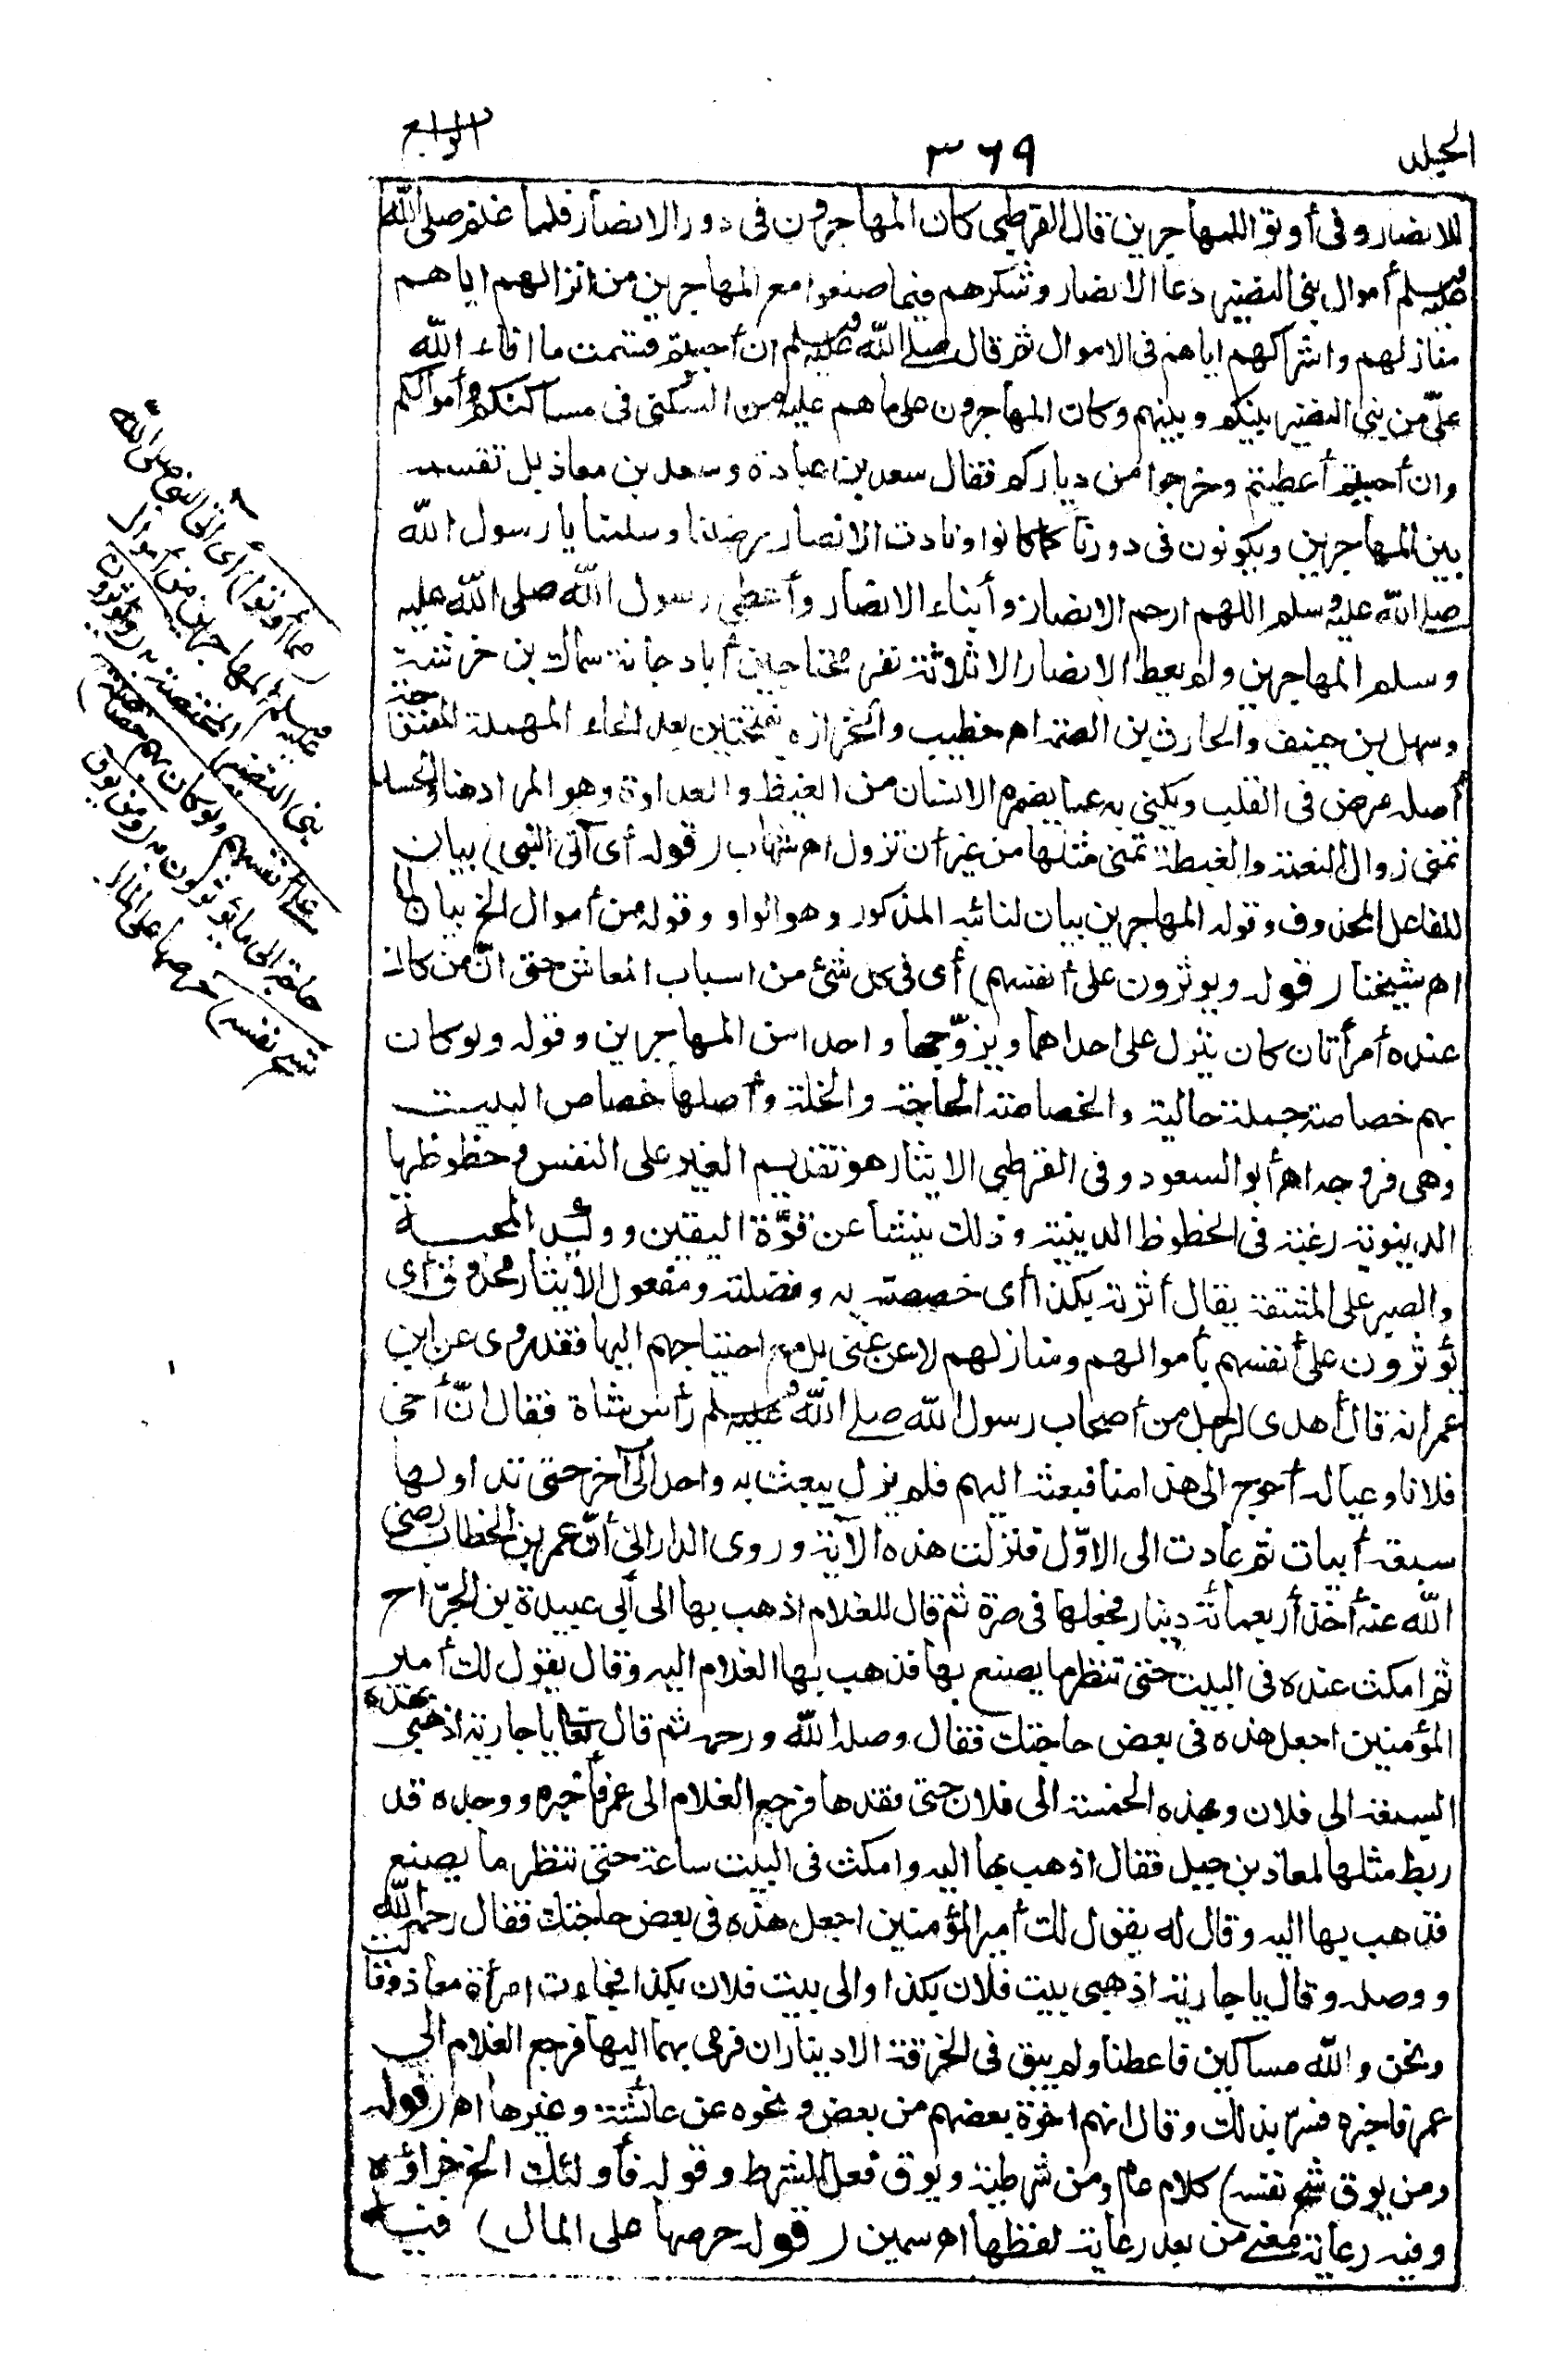 الجمل
٣٦٩
الرابع
للانصار وفى أوتوا للمهاجرين قال القرطبى كان المهاجرون فى دور الانصار فلما غنم صلى الله
عليه وسلم أموال بنى النضير دعا الانصار وشكرهم فيما صنعوا مع المهاجرين من انزالهم اياهم
منازلهم واشراكهم اياهم فى الاموال ثم قال صلى الله عليه وسلم ان أحببتم قسمت ما افاء الله
علىّ من بنى النضير بينكم وبينهم وكان المهاجرون على ما هم عليه من السكنى فى مساكنكم وأموالكم
وان أحببتم أعطيتم وخرجوا من دياركم فقال سعد بن عبادة وسعد بن معاذ بل تقسمه
بين المهاجرين ويكونون فى دورنا كما كانوا ونادت الانصار رضينا وسلمنا يا رسول الله
صلى الله عليه وسلم اللهم ارحم الانصار وأبناء الانصار وأعطى رسول الله صلى الله عليه
وسلم المهاجرين ولم يعط الانصار الا ثلاثة نفر محتاجين أبا دجانة سماك بن خرشة
وسهل بن حنيف والحارث بن الصمة اه خطيب والحزازة بفتحتين بعد الحاء المهملة المفتوحة
أصله مرض فى القلب ويكنى به عما يضمره الانسان من الغيظ والعداوة وهو المراد هنا والحسد
تمنى زوال النعمة والغبطة تمنى مثلها من غير أن تزول اه شهاب (قوله أى آتى النبى) بيان
للفاعل المحذوف وقوله المهاجرين بيان لنائبه المذكور وهو الواو وقوله من أموال الخ بيان لما
اه شيخنا (قوله ويؤثرون على أنفسهم) أى فى كل شئ من اسباب المعاش حتى انّ من كانت
عنده امرأتان كان ينزل على احداهما ويزوّجها واحدا من المهاجرين وقوله ولو كان
بهم خصاصة جملة حالية والخصاصة الحاجة والخلة وأصلها خصاص البيت
وهى فروجه اه أبو السعود وفى القرطبى الايثار هو تقديم الغير على النفس وحظوظها
الدنيوية رغبة فى الحظوظ الدينية وذلك ينشأ عن قوّة اليقين ووكيد المحبة
والصبر على المشقة يقال أثرته بكذا أى خصصته به وفضلته ومفعول الايثار محذوف أى
يؤثرون على أنفسهم بأموالهم ومنازلهم لا عن غنى بل مع احتياجهم اليها فقد روى عن ابن
عمر انه قال أهدى لرجل من أصحاب رسول الله صلى الله عليه وسلم رأس شاة فقال انّ أخى
فلانا وعياله أحوج الى هذا منا فبعثه اليهم فلم يزل يبعث به واحد الى آخر حتى تداولها
سبعة أبيات ثم عادت الى الاوّل فنزلت هذه الآية وروى الدارانى أنّ عمر بن الخطاب رضى
الله عنه أخذ أربعمائة دينار فجعلها فى صرة ثم قال للغلام اذهب بها الى أبى عبيدة بن الجرّاح
ثم امكث عنده فى البيت حتى تنظر ما يصنع بها فذهب بها الغلام اليه وقال يقول لك أمير
المؤمنين اجعل هذه فى بعض حاجتك فقال وصله الله ورحمه ثم قال تعالى يا جارية اذهبى بهذه
السبعة الى فلان وبهذه الخمسة الى فلان حتى نفدها فرجع الغلام الى عمر فأخبره ووجده قد
ربط مثلها لمعاذ بن جبل فقال اذهب بها اليه وامكث فى البيت ساعة حتى تنظر ما يصنع
فذهب بها اليه وقال له يقول لك أمير المؤمنين اجعل هذه فى بعض حاجتك فقال رحمه الله
ووصله وقال يا جارية اذهبى بيت فلان بكذا والى بيت فلان بكذا فجاءت امرأة معاذ وقالت
ونحن والله مساكين فاعطنا ولم يبق فى الخرقة الا ديناران فرمى بهما اليها فرجع الغلام الى
عمر فاخبره فسرّ بذلك وقال انهم اخوة بعضهم من بعض ونحوه عن عائشة وغيرها اه (قوله
ومن يوق شح نفسه) كلام عام ومن شرطية ويوق فعل الشرط وقوله فأولئك الخ جزاؤه
وفيه رعاية معنى من بعد رعاية لفظها اه سمين (قوله حرصها على المال) فيه
(مما أوتوا) أى آتى النبى صلى الله
عليه وسلم المهاجرين من أموال
بنى النضير المختصة به (ويؤثرون
على أنفسهم ولو كان بهم خصاصة)
حاجة الى ما يؤثرون به (ومن يوق
شح نفسه) حرصها على المال